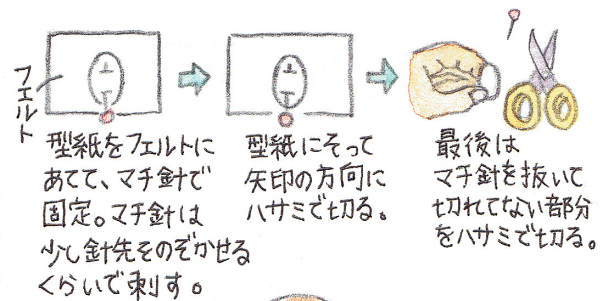 フェルト
型紙をフェルトに
あてて、マチ針で
固定。マチ針は
少し針先をのぞかせる
くらいで刺す。
型紙にそって
矢印の方向に
ハサミで切る。
最後は
マチ針を抜いて
切れてない部分
をハサミで切る。